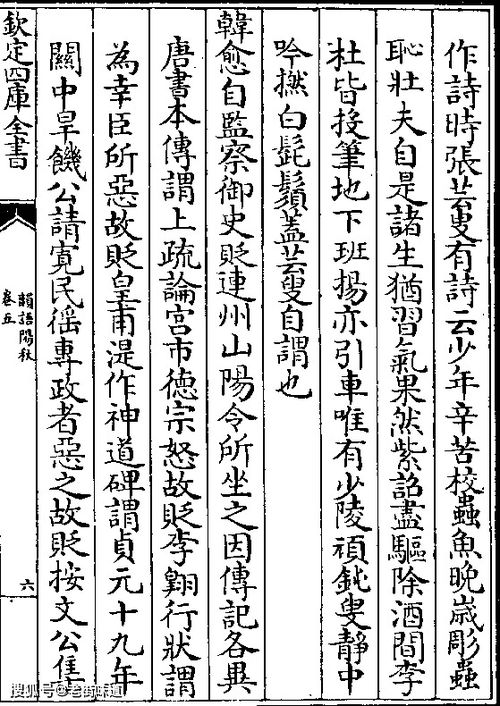 作詩時張芸叟有詩云少年辛苦校蟲魚晚歲彫蟲
恥壯夫自是諸生猶習氣果然紫詔盡驅除酒間李
杜皆投筆地下班揚亦引車唯有少陵頑鈍叟静中
吟撚白髭鬚蓋芸叟自謂也
韓愈自監察御史貶連州山陽令所坐之因傳記各異
唐書本傳謂上疏論宮市德宗怒故貶李翺行狀謂
為幸臣所惡故貶皇甫湜作神道碑謂貞元十九年
關中旱饑公請寛民徭專政者惡之故貶按文公
欽定四庫全書
韻語陽秋
卷五
六
搜狐号@老街味道